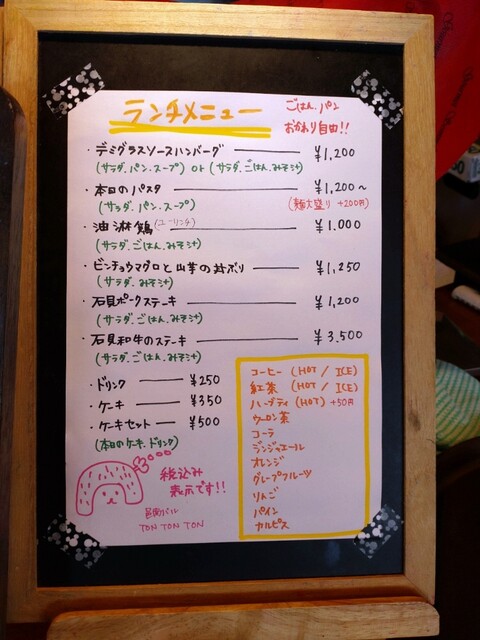 ランチメニュー
ごはん、パン
おかわり自由!!
・デミグラスソースハンバーグ ¥1,200
(サラダ、パン、スープ) or (サラダ、ごはん、みそ汁)
・本日のパスタ ¥1,200〜
(サラダ、パン、スープ) (麺大盛り +200円)
・油淋鶏(ユーリンチ) ¥1.000
(サラダ、ごはん、みそ汁)
・ビンチョウマグロと山芋の丼ぶり ¥1,250
(サラダ、みそ汁)
・石貝ポークステーキ ¥1,200
(サラダ、ごはん、みそ汁)
・石貝和牛のステーキ ¥3,500
(サラダ、ごはん、みそ汁)
・ドリンク ¥250
・ケーキ ¥350
・ケーキセット ¥500
(本日のケーキ、ドリンク)
コーヒー (HOT / ICE)
紅茶 (HOT / ICE)
ハーブティ (HOT) +50円
ウーロン茶
コーラ
ジンジャエール
オレンジ
グレープフルーツ
りんご
パイン
カルピス
税込み
表示です!!
バル
TON TON TON